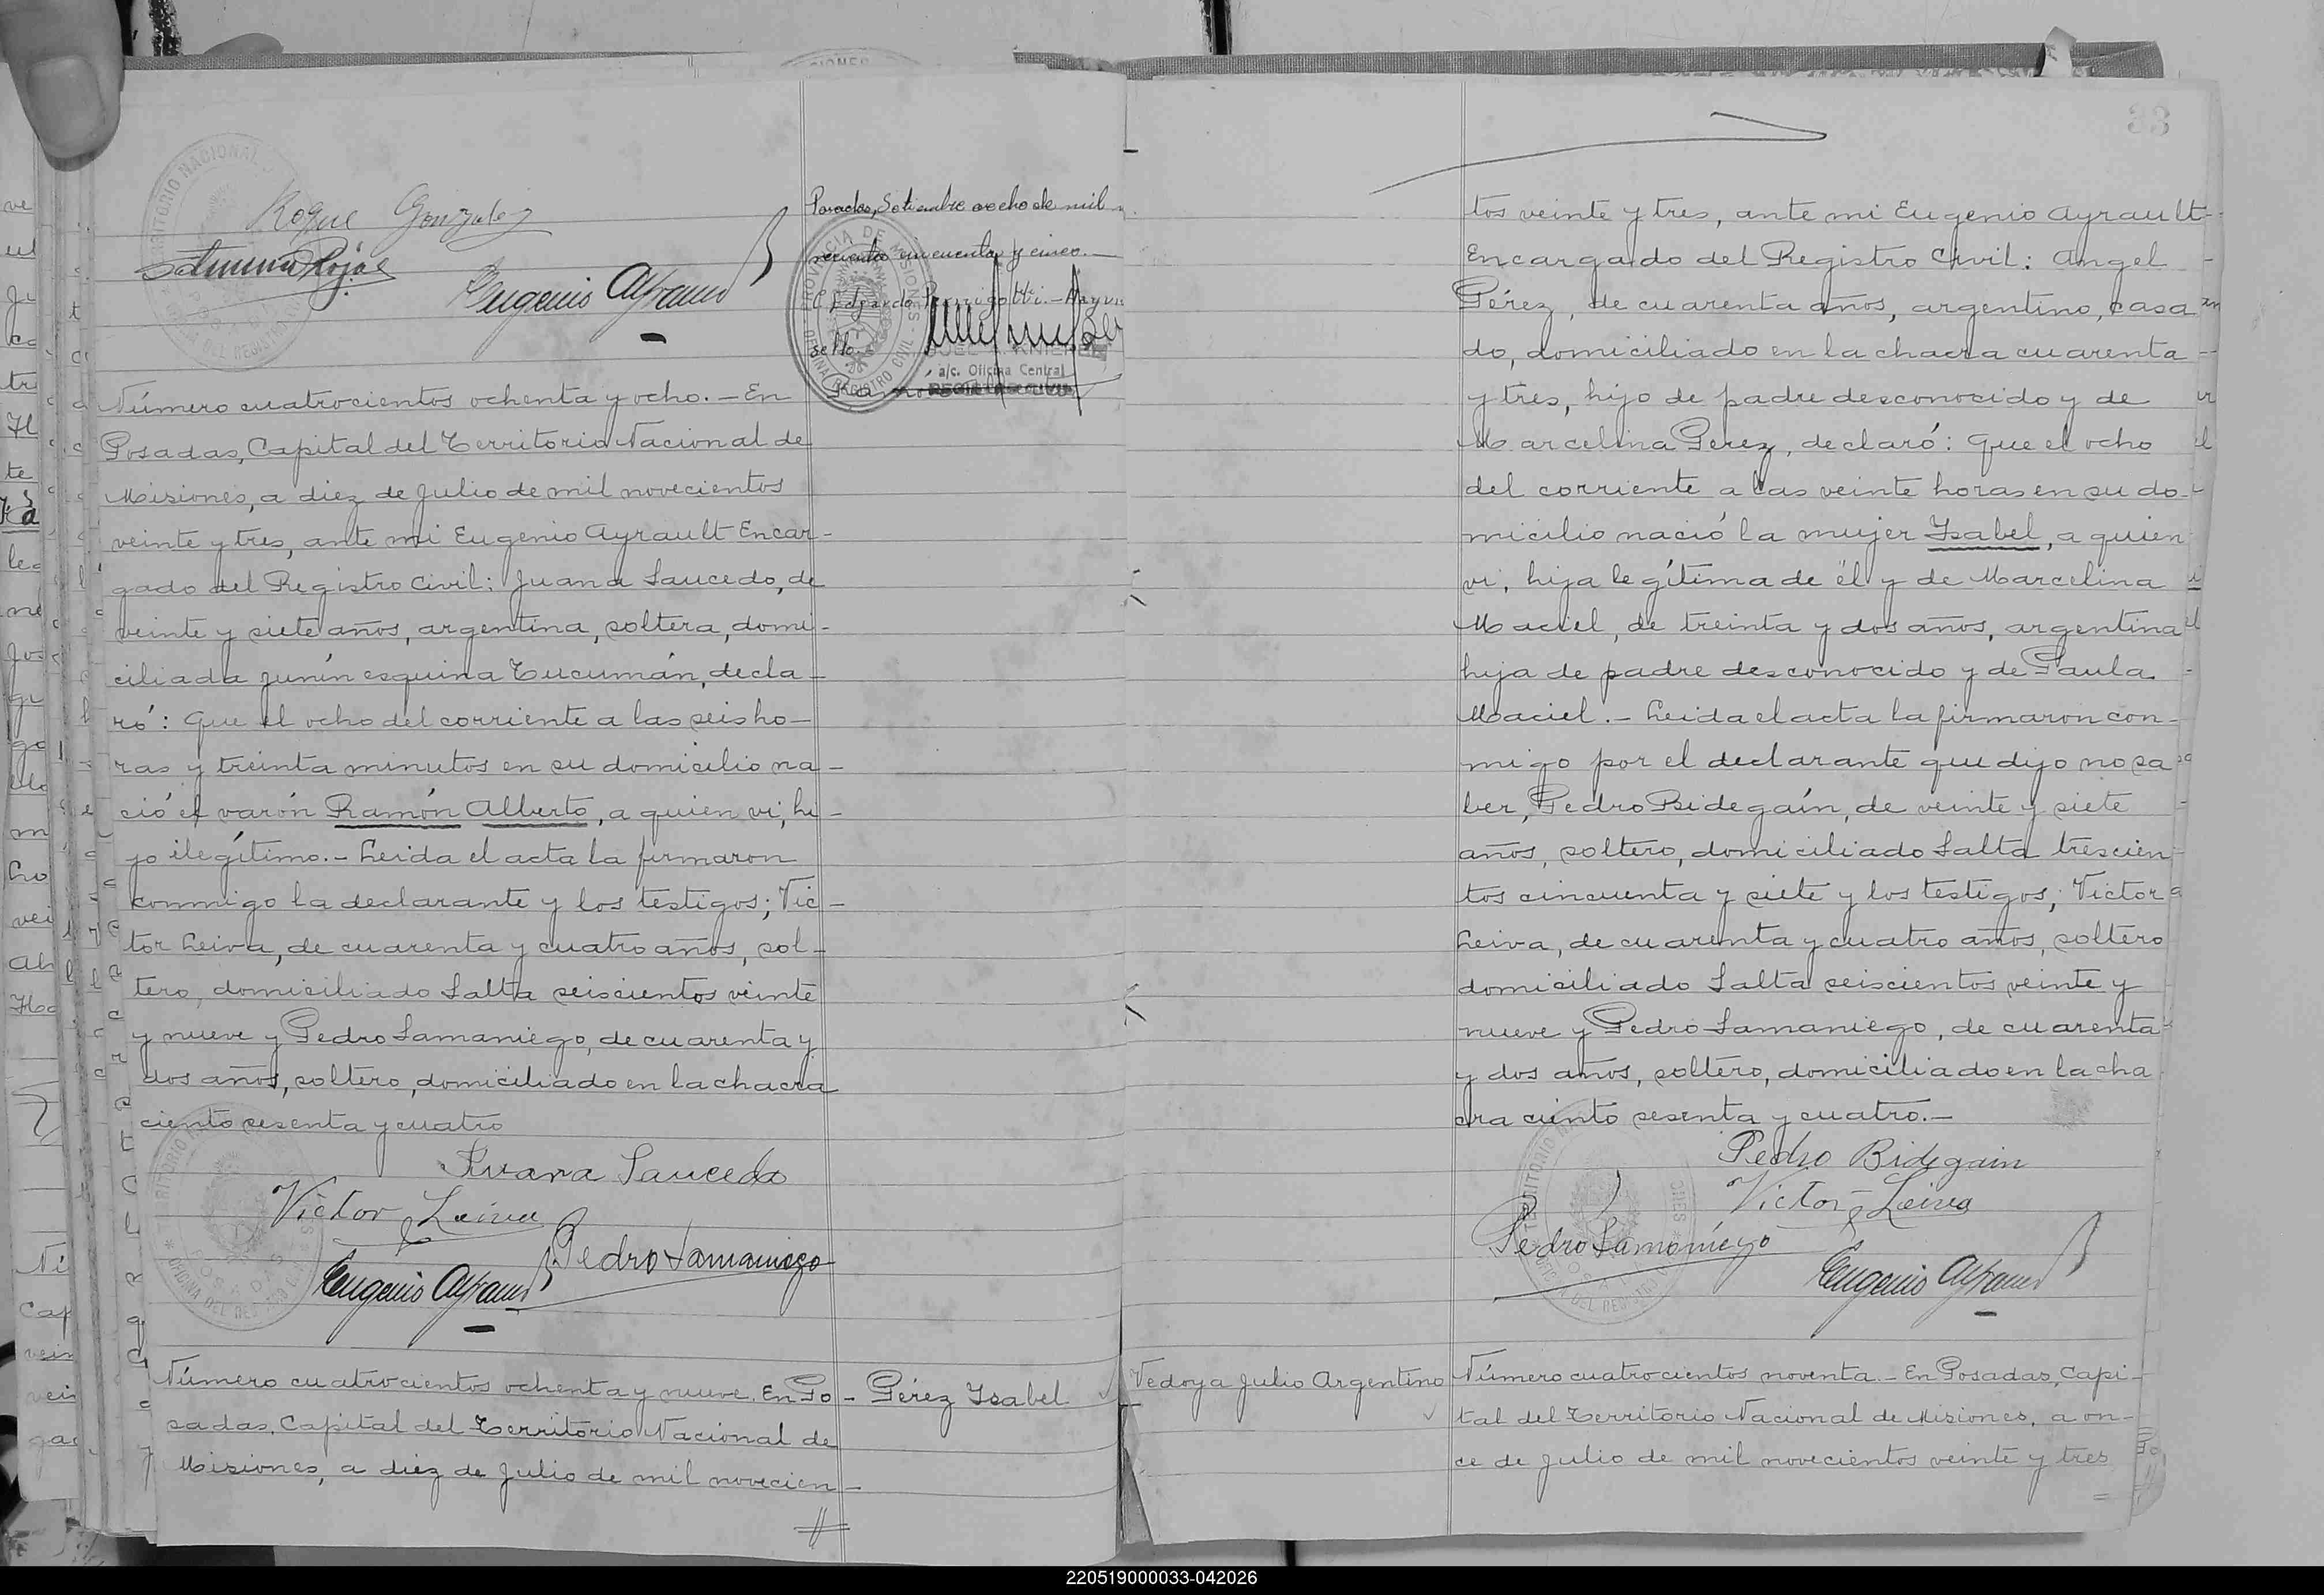 Roque Gonzalez
Rojas
Eugenio Ayrault
Posadas, Setiembre ocho de mil
novecientos cincuenta y cinco.—
sello
a/c. Oficina Central
REGISTRO CIVIL
PROVINCIA DE MISIONES
Número cuatrocientos ochenta y ocho.— En
Posadas, Capital del Territorio Nacional de
Misiones, a diez de Julio de mil novecientos
veinte y tres, ante mi Eugenio Ayrault Encar-
gado del Registro Civil: Juana Saucedo, de
veinte y siete años, argentina, soltera, domi-
ciliada Junín esquina Tucumán, decla-
ró: Que el ocho del corriente a las seis ho-
ras y treinta minutos en su domicilio na-
ció el varón Ramón Alberto, a quien vi, hi-
jo ilegítimo.— Leida el acta la firmaron
conmigo la declarante y los testigos; Vic-
tor Leiva, de cuarenta y cuatro años, sol-
tero, domiciliado Salta seiscientos veinte
y nueve y Pedro Samaniego, de cuarenta y
dos años, soltero, domiciliado en la chacra
ciento sesenta y cuatro
Juana Saucedo
Victor Leiva
Pedro Samaniego
Eugenio Ayrault
Número cuatrocientos ochenta y nueve. En Po-
Pérez Isabel
sadas, Capital del Territorio Nacional de
Misiones, a diez de Julio de mil novecien-
33
tos veinte y tres, ante mi Eugenio Ayrault
Encargado del Registro Civil: Angel
Pérez, de cuarenta años, argentino, casa
do, domiciliado en la chacra cuarenta
y tres, hijo de padre desconocido y de
Marcelina Perez, declaró: Que el ocho
del corriente a las veinte horas en su do-
micilio nació la mujer Isabel, a quien
vi, hija legítima de él y de Marcelina
Maciel, de treinta y dos años, argentina
hija de padre desconocido y de Paula
Maciel.— Leida el acta la firmaron con-
migo por el declarante que dijo no sa
ber, Pedro Bidegaín, de veinte y siete
años, soltero, domiciliado Salta trescien
tos cincuenta y siete y los testigos; Victor
Leiva, de cuarenta y cuatro años, soltero
domiciliado Salta seiscientos veinte y
nueve y Pedro Samaniego, de cuarenta
y dos años, soltero, domiciliado en la cha
cra ciento sesenta y cuatro.—
Pedro Bidegain
Victor Leiva
Pedro Samaniego
Eugenio Ayrault
Vedoya Julio Argentino
Número cuatrocientos noventa.— En Posadas, Capi-
tal del Territorio Nacional de Misiones, a on-
ce de Julio de mil novecientos veinte y tres
220519000033-042026